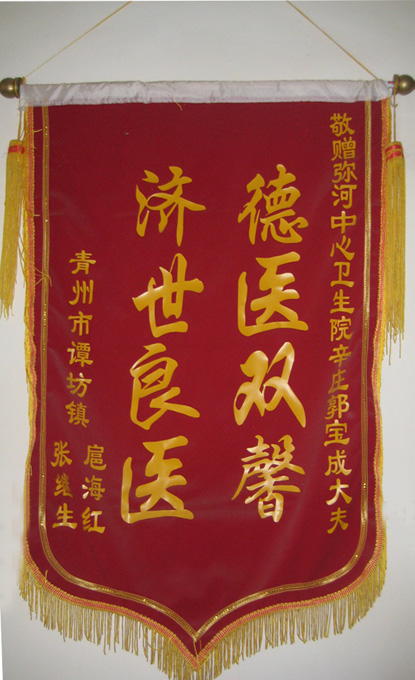 敬赠弥河中心卫生院辛庄郭宝成大夫
德医双馨
济世良医
青州市谭坊镇
扈海红
张继生